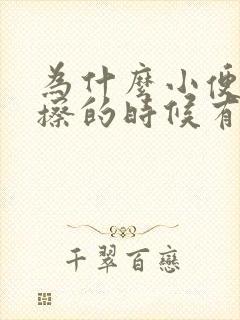 為什麼小便
擦的時候有
千翠百戀